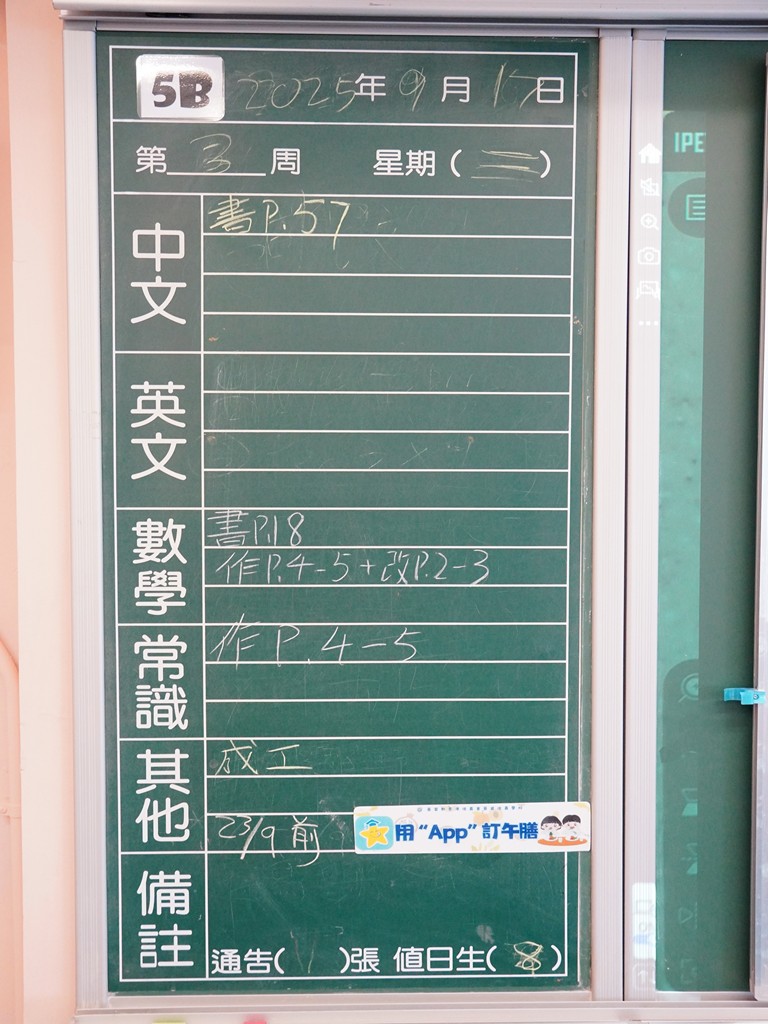 5B 2025年9月17日
第3周 星期(三)
中文
書P.57
英文
數學
書P.18
作P.4-5+改P.2-3
常識
作P.4-5
其他
成工
23/9前
用“App”訂午膳
備註
通告(1)張 值日生(8)
IPE